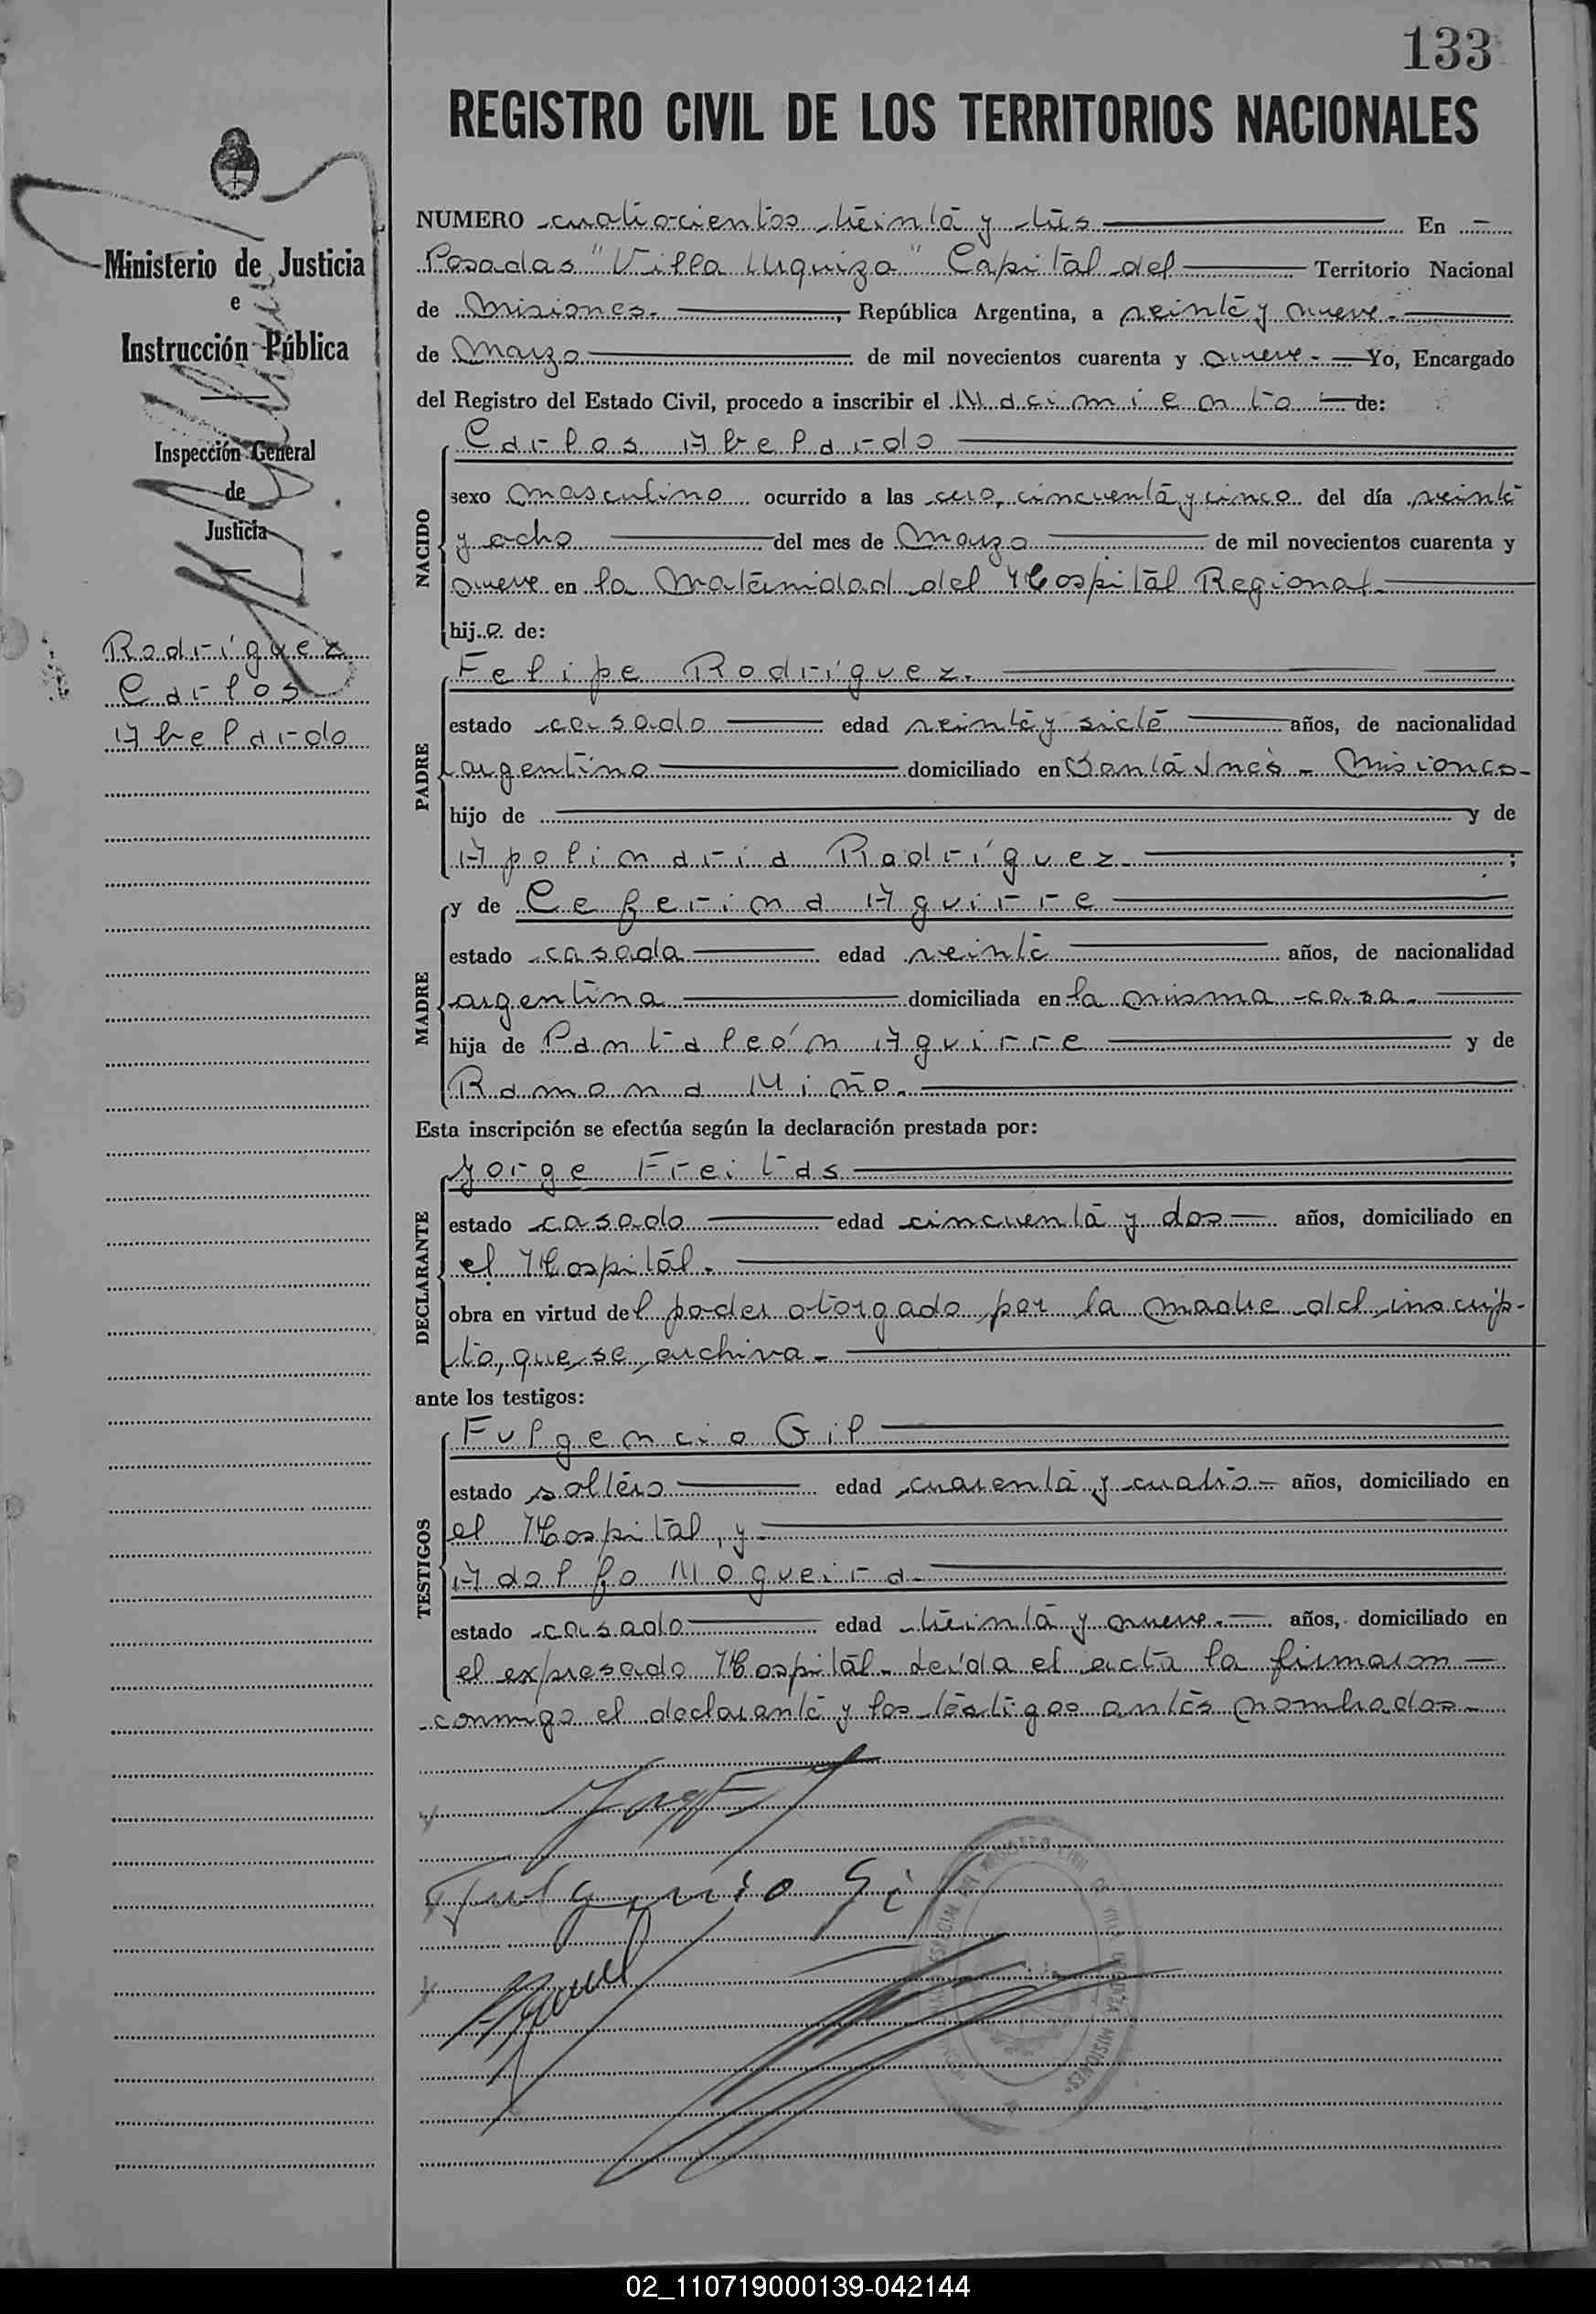 133
REGISTRO CIVIL DE LOS TERRITORIOS NACIONALES
Ministerio de Justicia
e
Instrucción Pública
Inspección General
de
Justicia
Rodríguez
Carlos
Abelardo
NUMERO cuatrocientos treinta y tres En
Posadas "Villa Urquiza" Capital del Territorio Nacional
de Misiones. , República Argentina, a veinte y nueve.
de Marzo de mil novecientos cuarenta y nueve. Yo, Encargado
del Registro del Estado Civil, procedo a inscribir el Nacimiento de:
NACIDO
Carlos Abelardo
sexo masculino ocurrido a las cero, cincuenta y cinco del día veinte
y ocho del mes de Marzo de mil novecientos cuarenta y
nueve en la Maternidad del Hospital Regional.
hij.o de:
PADRE
Felipe Rodríguez.
estado casado edad veinte y siete años, de nacionalidad
argentino domiciliado en Santa Inés - Misiones-
hijo de y de
Apolinaria Rodríguez. ;
MADRE
y de Ceferina Aguirre
estado casada edad veinte años, de nacionalidad
argentina domiciliada en la misma casa.
hija de Pantaleón Aguirre y de
Ramona Miño.
Esta inscripción se efectúa según la declaración prestada por:
DECLARANTE
Jorge Freitas
estado casado edad cincuenta y dos años, domiciliado en
el Hospital.
obra en virtud del poder otorgado por la madre del inscrip-
to, que se archiva.
ante los testigos:
TESTIGOS
Fulgencio Gil
estado soltero edad cuarenta y cuatro años, domiciliado en
el Hospital, y
Adolfo Nogueira.
estado casado edad treinta y nueve. años, domiciliado en
el expresado Hospital. Leída el acta la firmaron
conmigo el declarante y los testigos antes nombrados.
Fulgencio Gil
REGISTRO CIVIL DE VILLA URQUIZA MISIONES
02_110719000139-042144